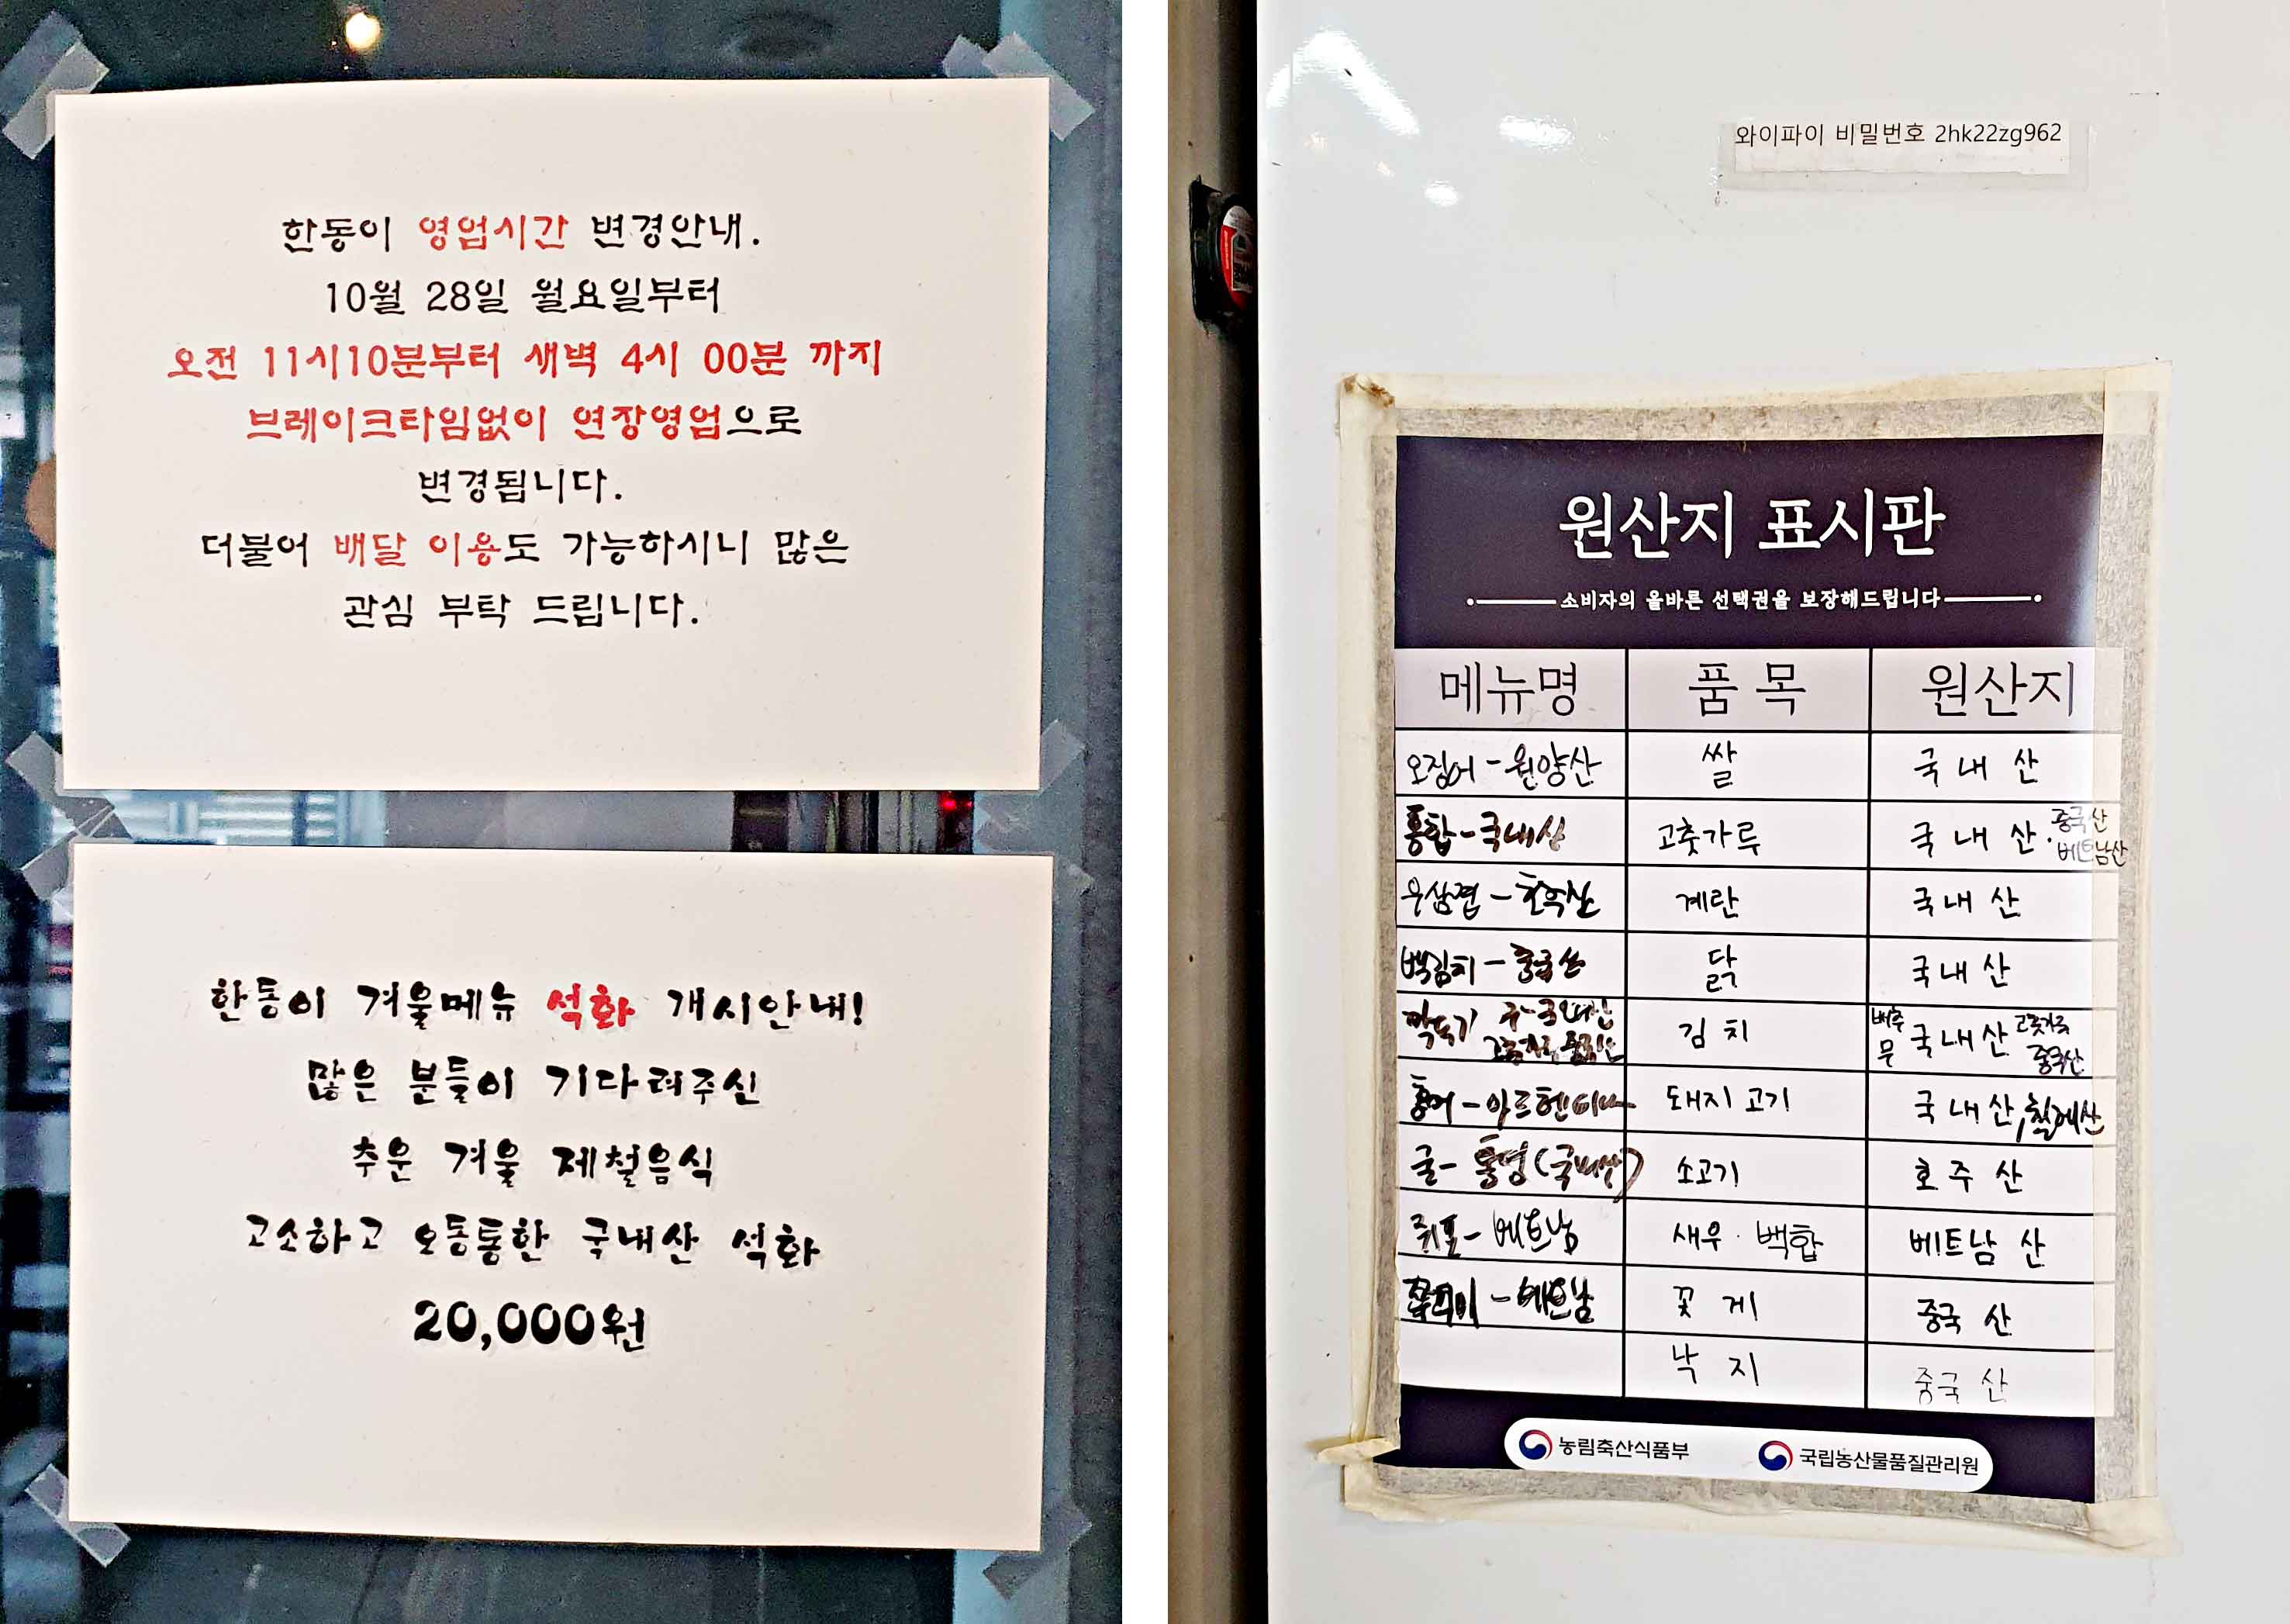 한동이 영업시간 변경안내.
10월 28일 월요일부터
오전 11시10분부터 새벽 4시 00분 까지
브레이크타임없이 연장영업으로
변경됩니다.
더불어 배달 이용도 가능하시니 많은
관심 부탁 드립니다.
한동이 겨울메뉴 석화 개시안내!
많은 분들이 기다려주신
추운 겨울 제철음식
고소하고 오동통한 국내산 석화
20,000원
와이파이 비밀번호 2hk22zg962
원산지 표시판
소비자의 올바른 선택권을 보장해드립니다
메뉴명 품 목 원산지
오징어 - 원양산 쌀 국 내 산
홍합 - 국내산 고춧가루 국 내 산 · 중국산 베트남산
계란 국 내 산
백김치 - 중국산 닭 국 내 산
깍두기 김 치 배추 무 국 내 산 고춧가루 중국산
홍어 - 아르헨티나 돼지 고기 국 내 산, 칠레산
굴 - 통영 (국내산) 소고기 호 주 산
쥐포 - 베트남 새우 · 백합 베트남 산
베트남 꽃 게 중국 산
낙 지 중국 산
농림축산식품부 국립농산물품질관리원